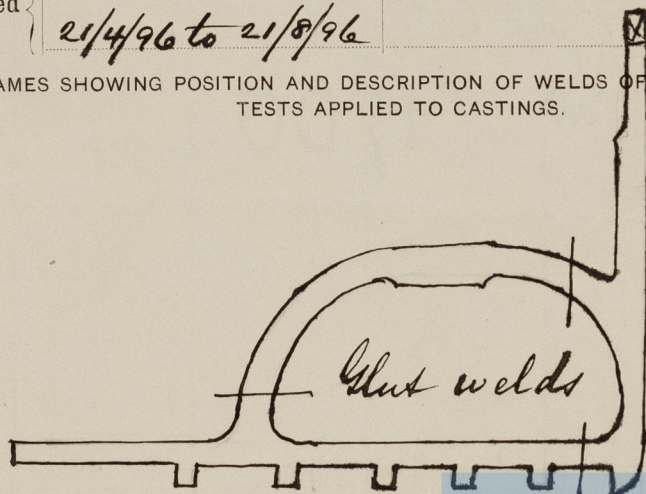 ed
21/4/96 to 21/8/96
AMES SHOWING POSITION AND DESCRIPTION OF WELDS OF
TESTS APPLIED TO CASTINGS.
Glut welds